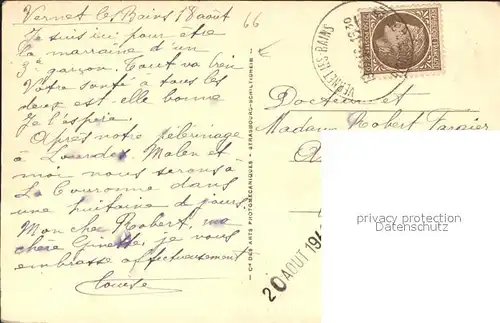 Vernet les Bains 18 août
66
Je suis ici pour être
la marraine d'un
3e garçon. Tout va bien
Votre santé à tous les
deux est-elle bonne
Je l'espère.
Après notre pèlerinage
à Lourdes. Malen et
moi nous serons à
La Couronne dans
une huitaine de jours
Mon cher Robert, ma
chère Ginette, je vous
embrasse affectueusement
Louise
Cie DES ARTS PHOTOMÉCANIQUES - STRASBOURG-SCHILTIGHEIM
VERNET-LES-BAINS
Docteur et
Madame Robert Farsier
privacy protection
watermark
20 AOUT 194